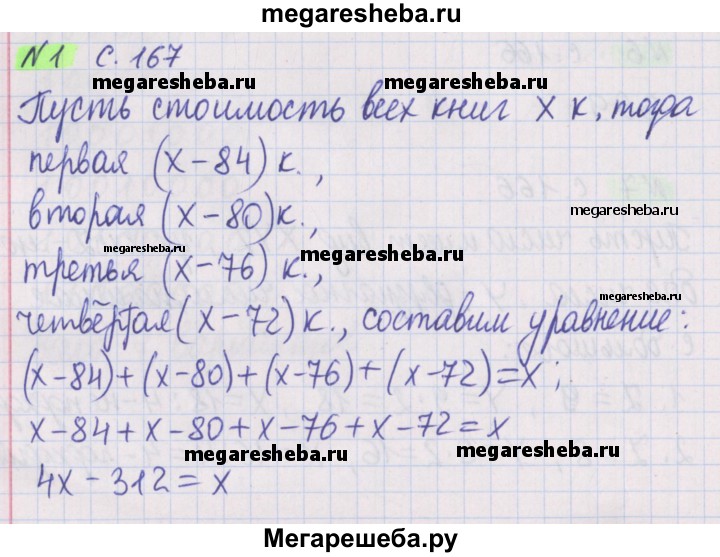 megaresheba.ru
N 1 с. 167
megaresheba.ru megaresheba.ru
Пусть стоимость всех книг x к, тогда
первая (x-84) к.,
вторая (x-80)к.,
megaresheba.ru
megaresheba.ru
третья (x-76) к.,
megaresheba.ru
четвёртая (x-72) к., составим уравнение:
(x-84)+(x-80)+(x-76)+(x-72)=x;
x-84+x-80+x-76+x-72=x
megaresheba.ru megaresheba.ru
4x-312=x
Мегарешеба.ру